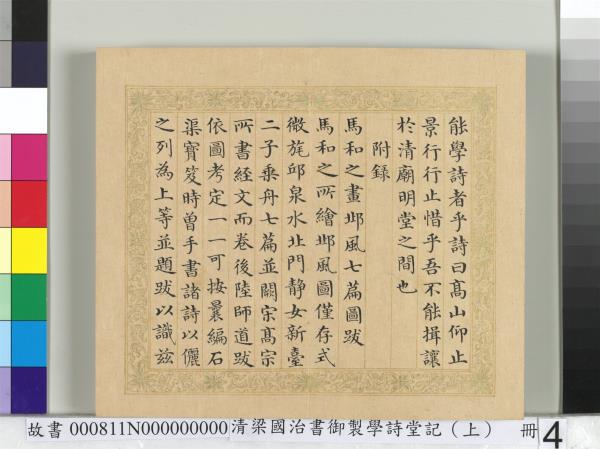 能學詩者乎詩曰髙山仰止
景行行止惜乎吾不能揖讓
於清廟明堂之間也
附錄
馬和之畫邶風七篇圖跋
馬和之所繪邶風圖僅存式
微旄邱泉水北門靜女新臺
二子乗舟七篇並闕宗髙宗
所書經文而卷後陸師道跋
依圖考定一一可按曩編石
渠寶笈時曽手書諸詩以儷
之列為上等並題跋以識兹
故書 000811N000000000 清梁國治書御製學詩堂記（上） 冊 4